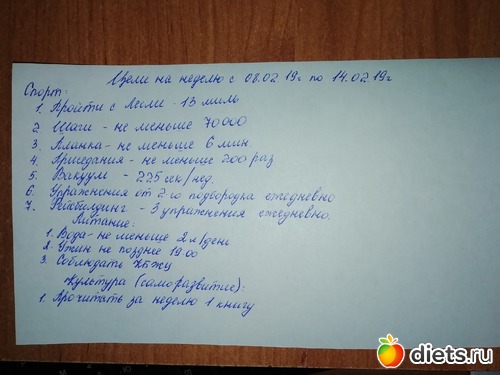 Цели на неделю с 08.02 19г по 14.02 19г
Спорт:
1. Пройти с Лесли - 13 миль
2. Шаги - не меньше 70000
3. Планка - не меньше 6 мин
4. Приседания - не меньше 200 раз
5. Вакуум - 225 сек/нед.
6. Упражнения от 2-го подбородка ежедневно
7. Фейсбилдинг - 3 упражнения ежедневно.
Питание:
1. Вода - не меньше 2 л/день
2. Ужин не позднее 19:00
3. Соблюдать КБЖУ
Культура (саморазвитие):
1. Прочитать за неделю 1 книгу
diets.ru